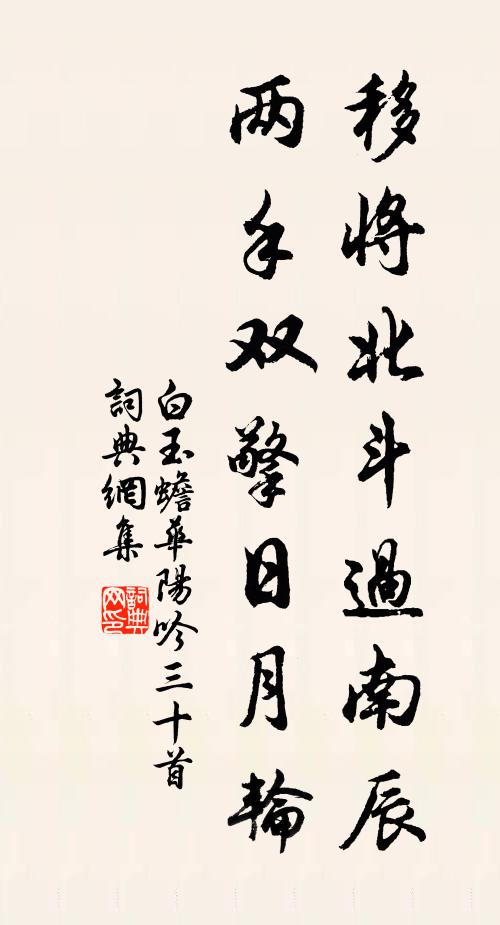 移將北斗過南辰
两手双擎日月輪
白玉蟾華陽吟三十首
詞典網集
詞典网印